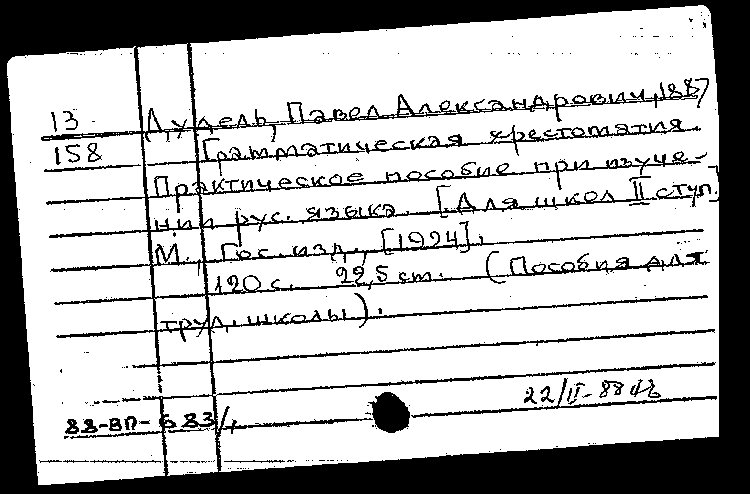 13 Дудель, Павел Александрович, 1887
158 Грамматическая хрестоматия.
Практическое пособие при изуче-
нии рус. языка. [Для школ II ступ.]
М., Гос. изд., [1924].
120 с. 22,5 cm. (Пособия для
труд. школы).
22/II-88
88-ВП-683/,